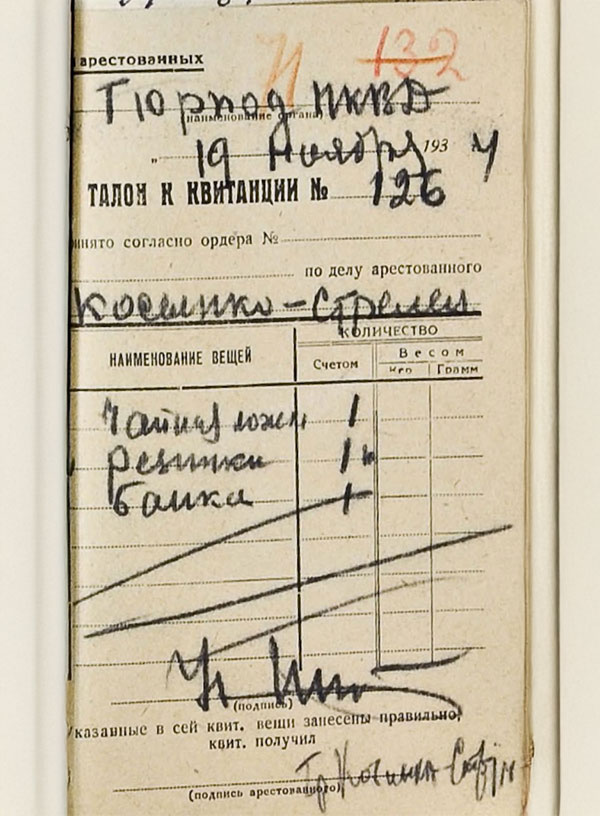 арестованных
132
Тюрпод НКВД
(наименование органа)
„ 19 Ноября 193 4
ТАЛОН К КВИТАНЦИИ № 126
инято согласно ордера №
по делу арестованного
Косынко-Стрелец
НАИМЕНОВАНИЕ ВЕЩЕЙ
КОЛИЧЕСТВО
Счетом
Весом
Кго
Грамм
Чайная ложк 1
Резинки 1
банка 1
(подпись)
Указанные в сей квит. вещи занесены правильно,
квит. получил
(подпись арестованного)